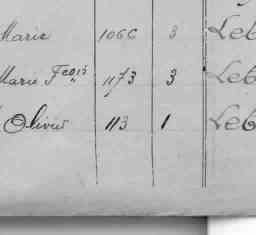 Marie 1066 3 Leb
Marie Fcois 1173 3 Leb
Olivier 113 1 Leb